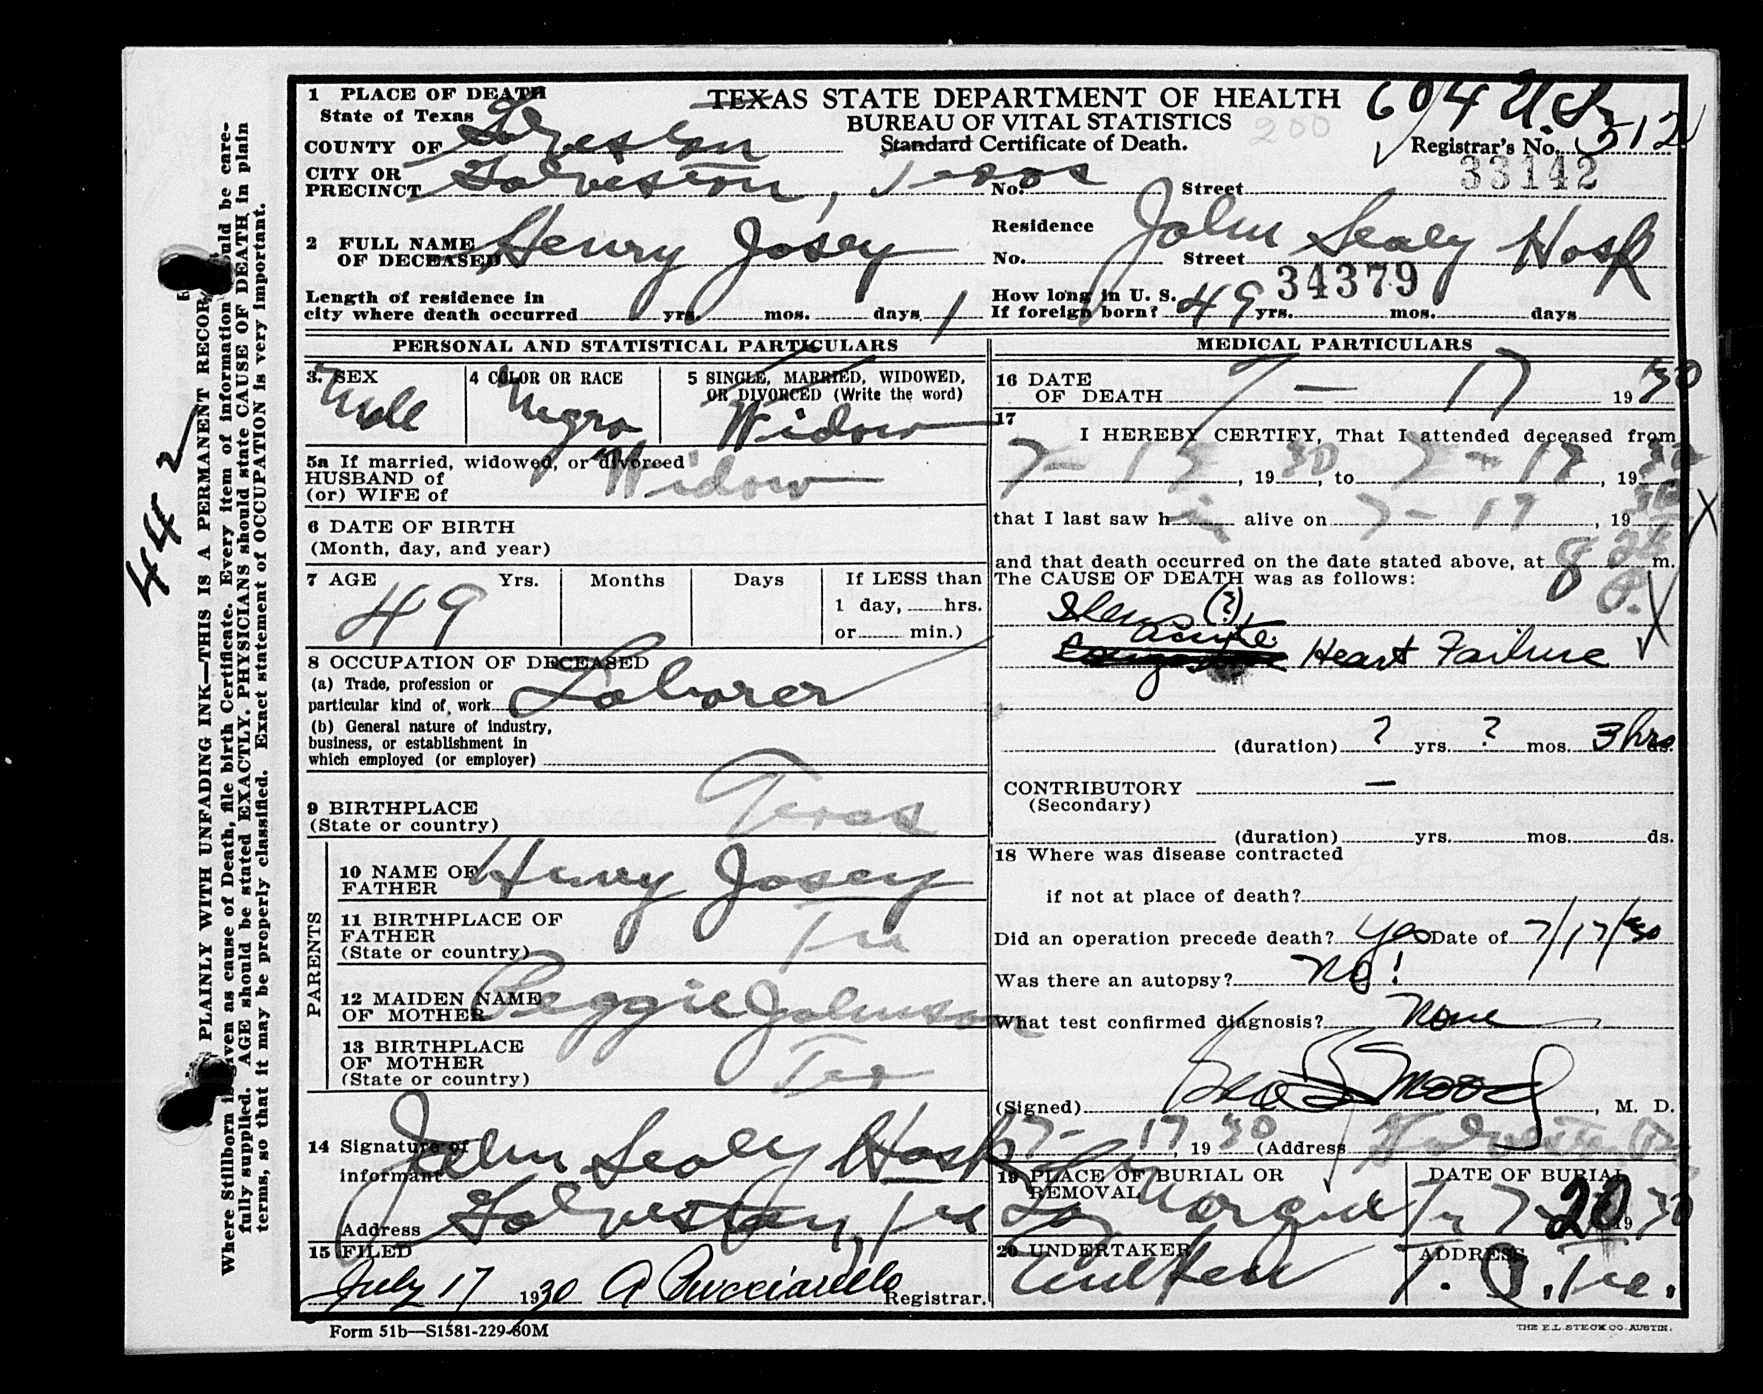 1 PLACE OF DEATH
State of Texas
COUNTY OF Galveston
CITY OR PRECINCT Galveston, Texas
TEXAS STATE DEPARTMENT OF HEALTH
BUREAU OF VITAL STATISTICS
Standard Certificate of Death.
200
604
Registrar's No. 512
33142
No. Street
2 FULL NAME OF DECEASED Henry Josey
Residence John Sealy Hosp
No. Street
34379
Length of residence in city where death occurred yrs. mos. days 1
How long in U. S. If foreign born? 49 yrs. mos. days
PERSONAL AND STATISTICAL PARTICULARS
3. SEX Male
4 COLOR OR RACE Negro
5 SINGLE, MARRIED, WIDOWED, OR DIVORCED (Write the word) Widow
5a If married, widowed, or divorced
HUSBAND of
(or) WIFE of
Widow
6 DATE OF BIRTH
(Month, day, and year)
7 AGE Yrs. Months Days If LESS than
49
1 day, hrs.
or min.)
8 OCCUPATION OF DECEASED
(a) Trade, profession or
particular kind of work Laborer
(b) General nature of industry,
business, or establishment in
which employed (or employer)
9 BIRTHPLACE
(State or country) Texas
PARENTS
10 NAME OF FATHER Henry Josey
11 BIRTHPLACE OF FATHER
(State or country) Tex
12 MAIDEN NAME OF MOTHER Peggie Johnson
13 BIRTHPLACE OF MOTHER
(State or country) Tex
14 Signature of informant John Sealy Hosp
Address Galveston, Tex
15 FILED
July 17 1930 A Pucciarello Registrar.
MEDICAL PARTICULARS
16 DATE OF DEATH 7 - 17 1930
17
I HEREBY CERTIFY, That I attended deceased from
7- 1930, to 7-17, 1930
that I last saw him alive on 7-17, 1930
and that death occurred on the date stated above, at 8 m.
P.
The CAUSE OF DEATH was as follows:
(?)
acute
Heart Failure
(duration) ? yrs. ? mos. 3 hrs
CONTRIBUTORY —
(Secondary)
(duration) yrs. mos. ds.
18 Where was disease contracted
if not at place of death?
Did an operation precede death? yes Date of 7/17/30
Was there an autopsy? No!
What test confirmed diagnosis? None
(Signed) , M. D.
7- 17 1930 (Address Galveston
19 PLACE OF BURIAL OR REMOVAL
La Marque Tex
DATE OF BURIAL
7- 20 1930
20 UNDERTAKER
ADDRESS
Tex.
Form 51b—S1581-229-60M
THE E.L. STECK CO. AUSTIN.
442
PLAINLY WITH UNFADING INK—THIS IS A PERMANENT RECOR
Where Stillborn is given as cause of Death, file birth Certificate. Every item of information should be care-
fully supplied. AGE should be stated EXACTLY. PHYSICIANS should state CAUSE OF DEATH in plain
terms, so that it may be properly classified. Exact statement of OCCUPATION is very important.